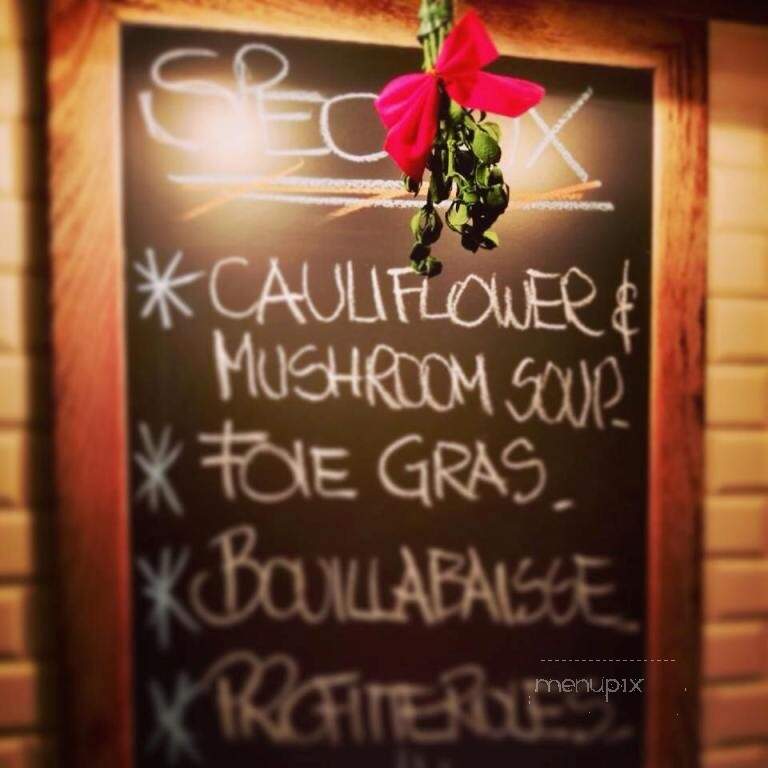 * CAULIFLOWER &
MUSHROOM SOUP_
* FOIE GRAS_
* BOUILLABAISSE_
* PROFITTEROLES_
menupix